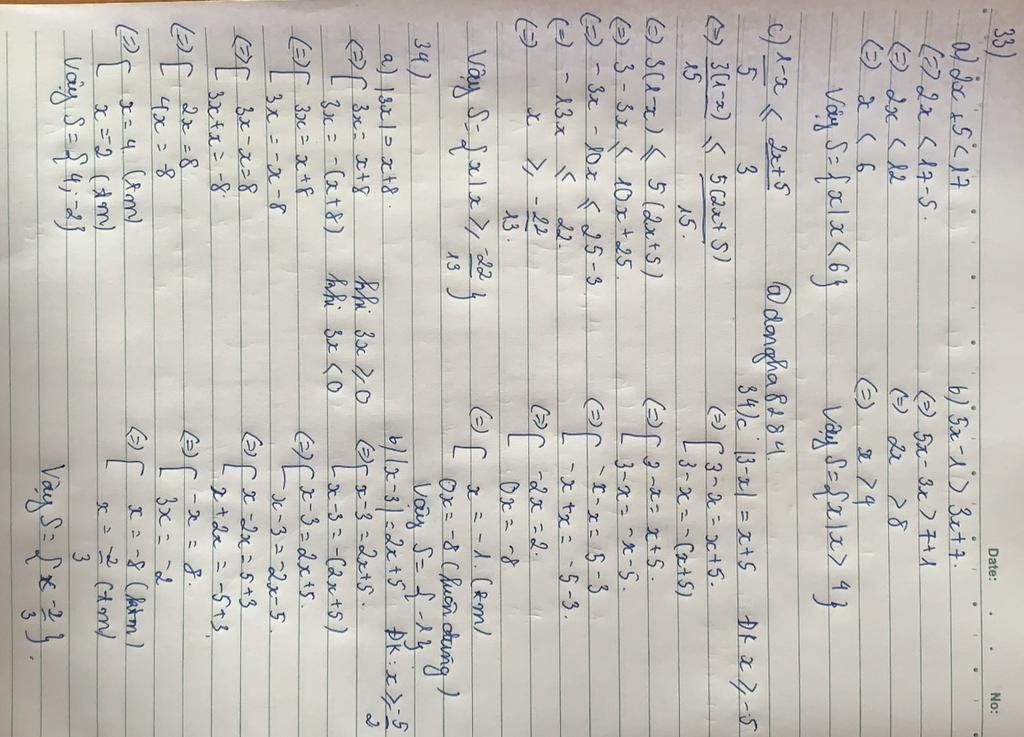 Date: No:
33)
a) 2x + 5 < 17
(=) 2x < 17 - 5.
(=) 2x < 12
(=) x < 6
Vậy S = { x | x < 6 }
b) 5x - 1 > 3x + 7.
(=) 5x - 3x > 7 + 1
(=) 2x > 8
(=) x > 4
Vậy S = { x | x > 4 }
c) 1-x/5 ≤ 2x+5/3
@dongha8284.
(=) 3(1-x)/15 ≤ 5(2x+5)/15.
(=) 3(1-x) ≤ 5(2x+5)
(=) 3 - 3x ≤ 10x + 25.
(=) - 3x - 10x ≤ 25 - 3
(=) - 13x ≤ 22.
(=) x ≥ -22/13.
Vậy S = { x | x ≥ -22/13 }
34)
a) |3x| = x + 8.
(=) [ 3x = x + 8 khi 3x ≥ 0
[ 3x = -(x + 8) khi 3x < 0
(=) [ 3x = x + 8
[ 3x = -x - 8
(=) [ 3x - x = 8
[ 3x + x = -8.
(=) [ 2x = 8
[ 4x = -8
(=) [ x = 4 (tm)
[ x = -2 (tm)
Vậy S = { 4; -2 }
34) c |3-x| = x + 5 ĐK x ≥ -5
(=) [ 3 - x = x + 5.
[ 3 - x = -(x + 5)
(=) [ 3 - x = x + 5.
[ 3 - x = -x - 5.
(=) [ -x - x = 5 - 3
[ -x + x = -5 - 3.
(=) [ -2x = 2.
[ 0x = -8
(=) [ x = -1. (tm)
[ 0x = -8 (luôn đúng)
Vậy S = { -1 }
b) |x - 3| = 2x + 5 ĐK: x ≥ -5/2
(=) [ x - 3 = 2x + 5.
[ x - 3 = -(2x + 5)
(=) [ x - 3 = 2x + 5.
[ x - 3 = -2x - 5.
(=) [ x - 2x = 5 + 3
[ x + 2x = -5 + 3.
(=) [ -x = 8.
[ 3x = -2
(=) [ x = -8 (ktm)
[ x = -2/3 (tm)
Vậy S = { -2/3 }.